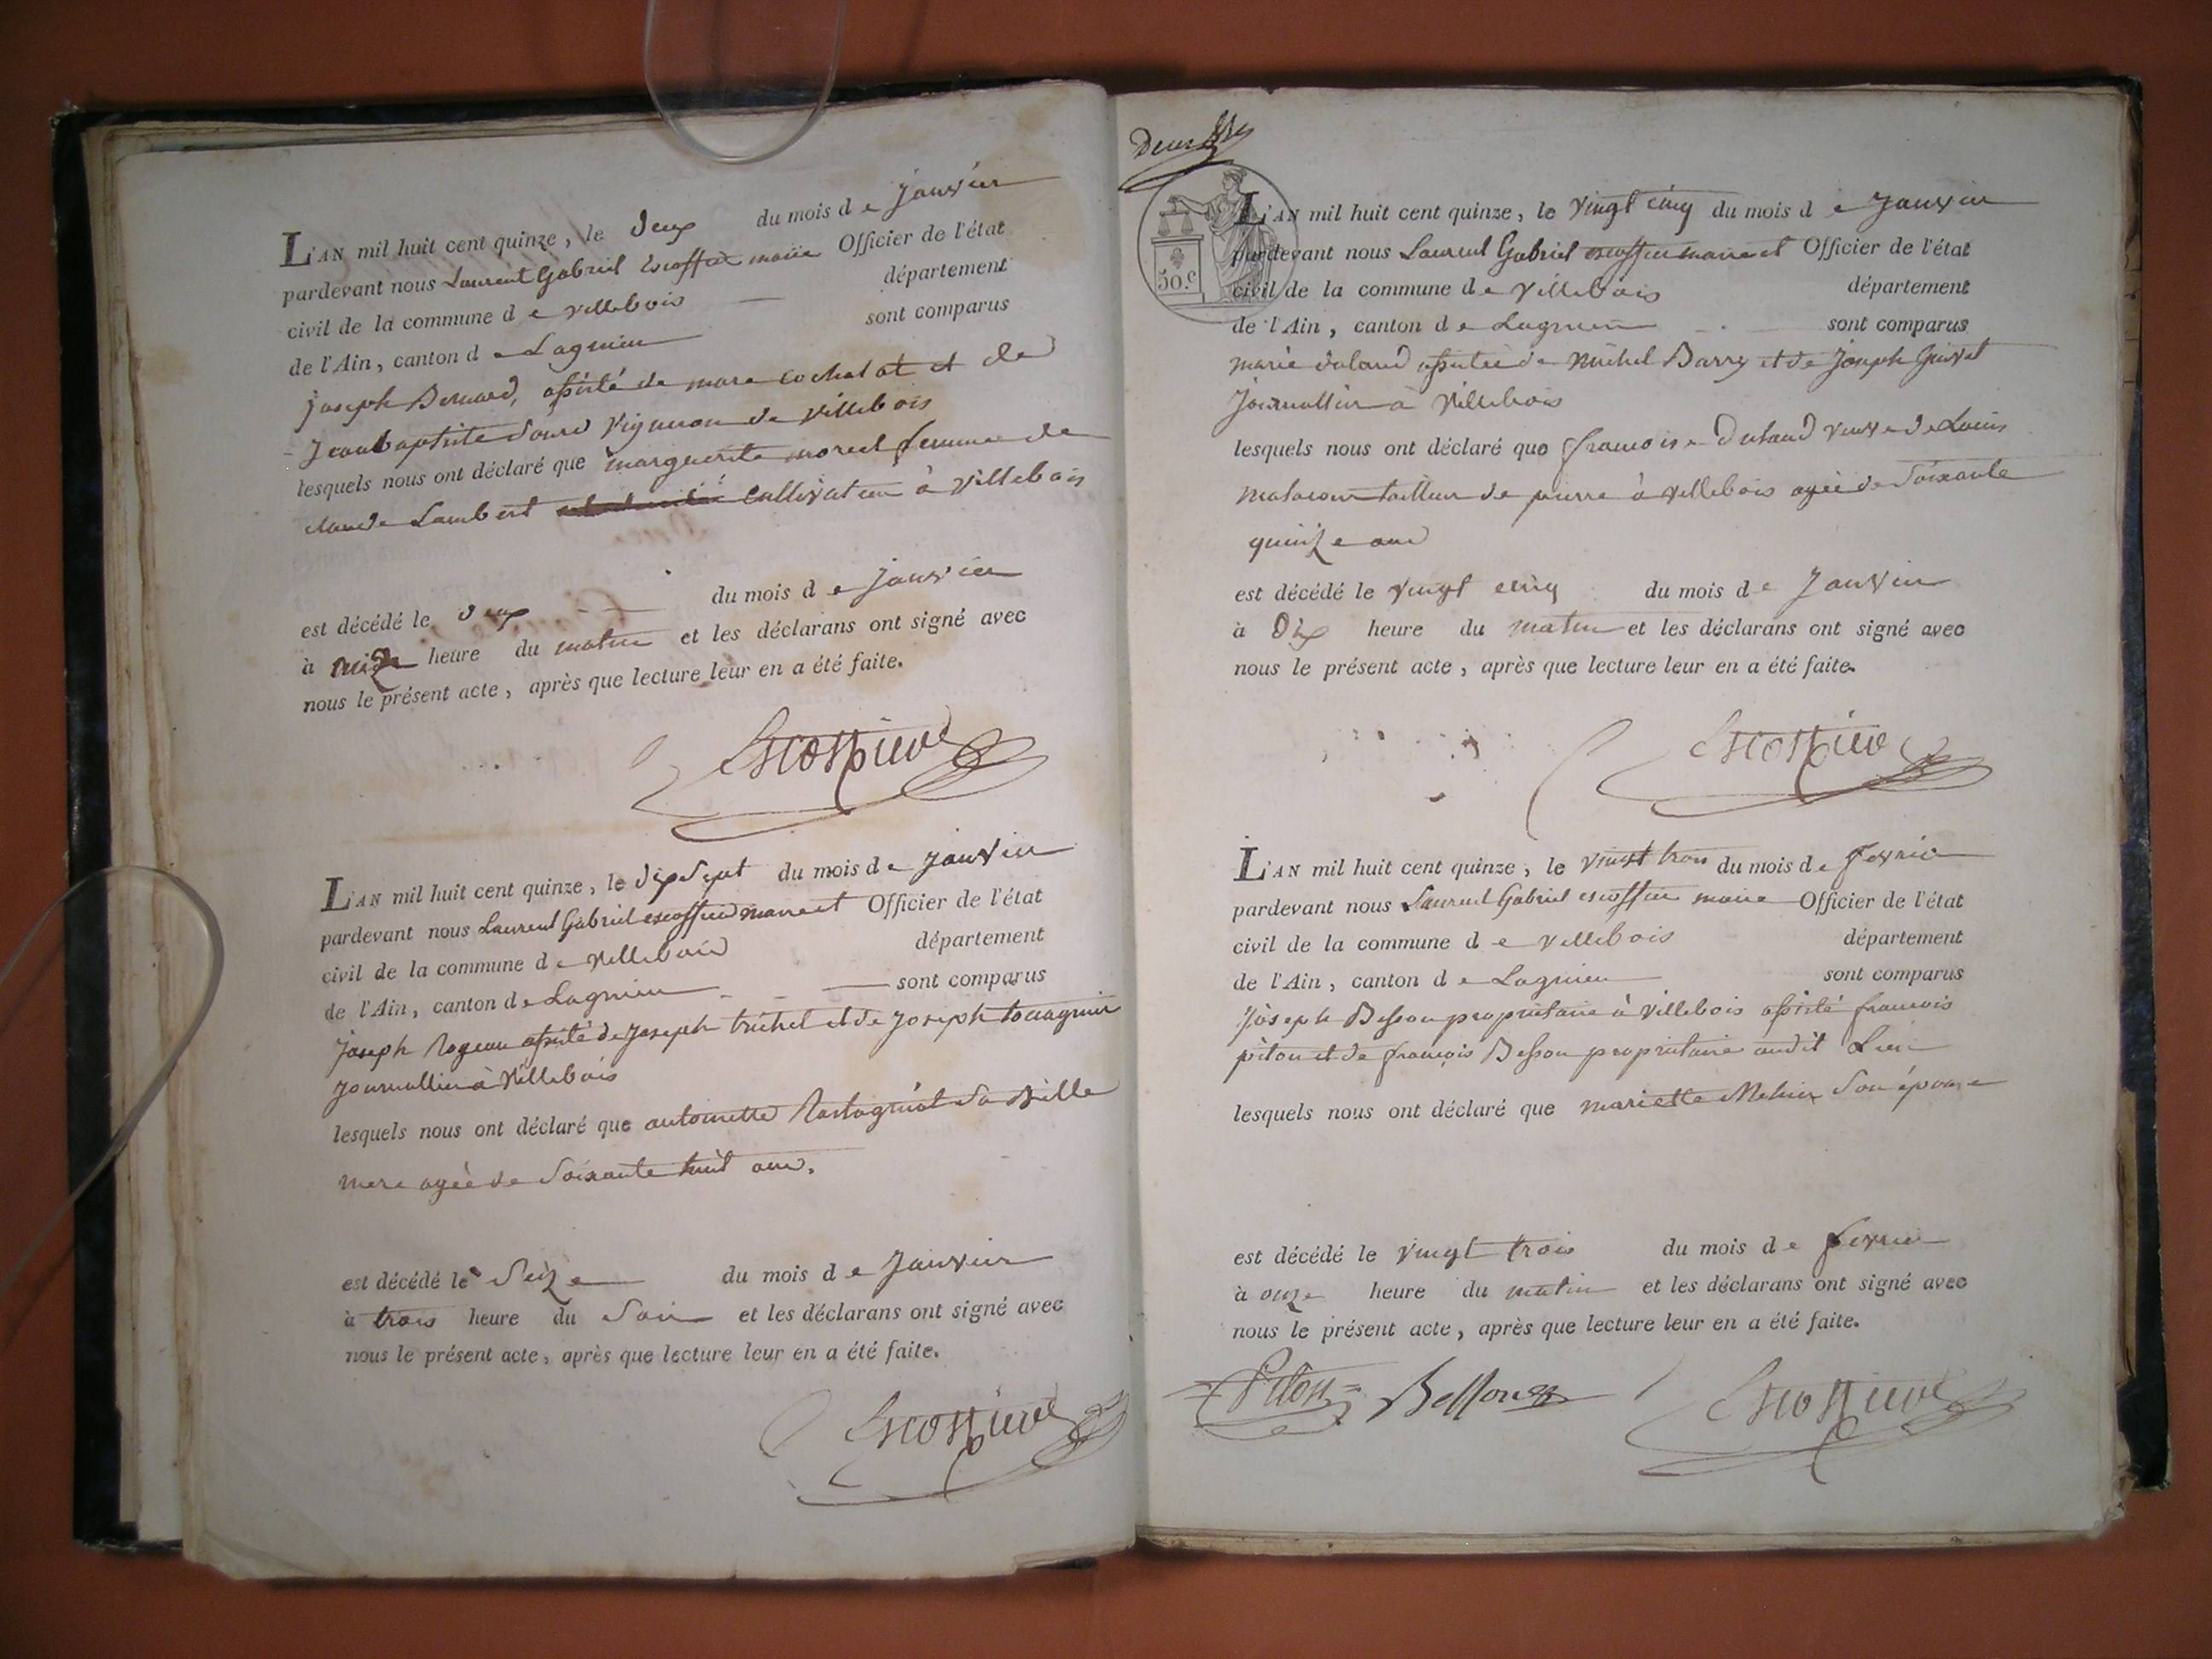 L'AN mil huit cent quinze, le deux du mois de janvier
pardevant nous Laurent Gabriel Escoffier maire Officier de l'état
civil de la commune de villebois département
de l'Ain, canton de Lagnieu sont comparus
joseph Bernard, assisté de marc cochalat et de
Jean baptiste vigneron de villebois
lesquels nous ont déclaré que marguerite morel femme de
claude Lambert cultivateur à villebois
est décédé le deux du mois de janvier
à heure du matin et les déclarans ont signé avec
nous le présent acte, après que lecture leur en a été faite.
Escoffier
L'AN mil huit cent quinze, le dix Sept du mois de janvier
pardevant nous Laurent Gabriel escoffier maire et Officier de l'état
civil de la commune de villebois département
de l'Ain, canton de Lagnieu sont comparus
joseph assisté de joseph trichet et de joseph
journallier à villebois
lesquels nous ont déclaré que antoinette Sa belle
mere agée de Soixante huit ans.
est décédé le Seize du mois de Janvier
à trois heure du Soir et les déclarans ont signé avec
nous le présent acte, après que lecture leur en a été faite.
Escoffier
Deux
50.c
L'AN mil huit cent quinze, le vingt cinq du mois de Janvier
pardevant nous Laurent Gabriel escoffier maire et Officier de l'état
civil de la commune de villebois département
de l'Ain, canton de Lagnieu sont comparus
marie assistée de michel Barry et de Joseph
Journallier à villebois
lesquels nous ont déclaré que francoise veuve de Louis
tailleur de pierre à villebois agée de Soixante
quinze ans
est décédé le vingt cinq du mois de Janvier
à Dix heure du matin et les déclarans ont signé avec
nous le présent acte, après que lecture leur en a été faite.
Escoffier
L'AN mil huit cent quinze, le vingt trois du mois de fevrier
pardevant nous Laurent Gabriel escoffier maire Officier de l'état
civil de la commune de villebois département
de l'Ain, canton de Lagnieu sont comparus
Joseph Besson proprietaire à villebois assisté francois
piton et de françois Besson proprietaire audit Lieu
lesquels nous ont déclaré que mariette Son épouse
est décédé le vingt trois du mois de fevrier
à onze heure du matin et les déclarans ont signé avec
nous le présent acte, après que lecture leur en a été faite.
Piton Besson Escoffier